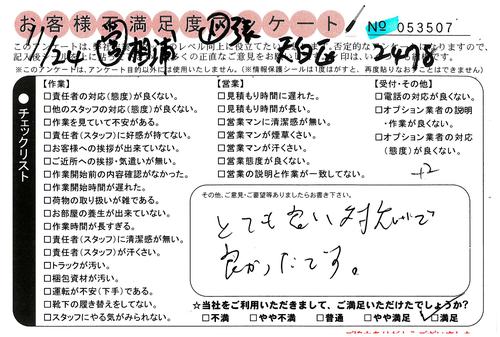 お客様不満足度アンケート! No 053507
11/24 夢相浦 出張 天白区 2478
※このアンケートは、アンケート目的以外には使用いたしません。(※情報保護シールは1度はがすと、再度貼りなおすことはできません)
●チェックリスト
【作業】
□責任者の対応(態度)が良くない。
□他のスタッフの対応(態度)が良くない。
□作業を見ていて不安がある。
□責任者(スタッフ)に好感が持てない。
□お客様への挨拶が出来ていない。
□ご近所への挨拶・気遣いが無い。
□作業開始前の内容確認がなかった。
□作業開始時間が遅れた。
□荷物の取り扱いが雑である。
□お部屋の養生が出来ていない。
□作業時間が長すぎる。
□責任者(スタッフ)に清潔感が無い。
□責任者(スタッフ)が汗くさい。
□トラックが汚い。
□梱包資材が汚い。
□運転が不安(下手)である。
□靴下の履き替えをしてない。
□スタッフにやる気がみられない。
【営業】
□見積もり時間に遅れた。
□見積もり時間が長い。
□営業マンに清潔感が無い。
□営業マンが煙草くさい。
□営業マンが汗くさい。
□営業態度が良くない。
□営業の説明と作業が一致してない。
【受付・その他】
□電話の対応が良くない。
□オプション業者の説明
・作業が良くない。
□オプション業者の対応
(態度)が良くない。
+2
その他、ご意見・ご要望等ありましたらお書き下さい。
とても良い対応で
良かったです。
☆当社をご利用いただきまして、ご満足いただけたでしょうか?
□不満 □やや不満 □普通 □やや満足 □満足